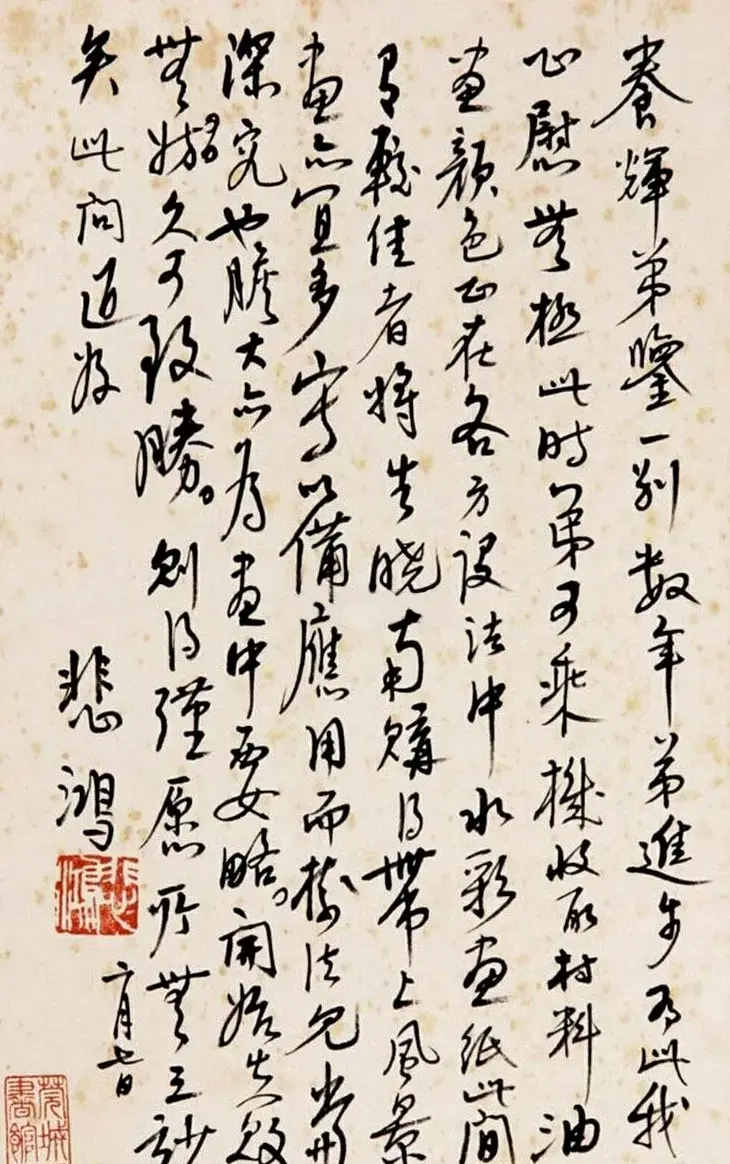 養輝弟鑒一別數年弟進步此我
心慰無極此時弟可乘機收取材料油
畫顏色正在各方設法中水彩畫紙此間
有較佳者將告曉南購得帶上風景
畫亦宜多寫以備應用而樹法尤
深究也膽大亦为畫中要略。開始失敗
無妨久可致勝。則得所無之妙
矣此问近好
悲鴻
悲鴻
月七日